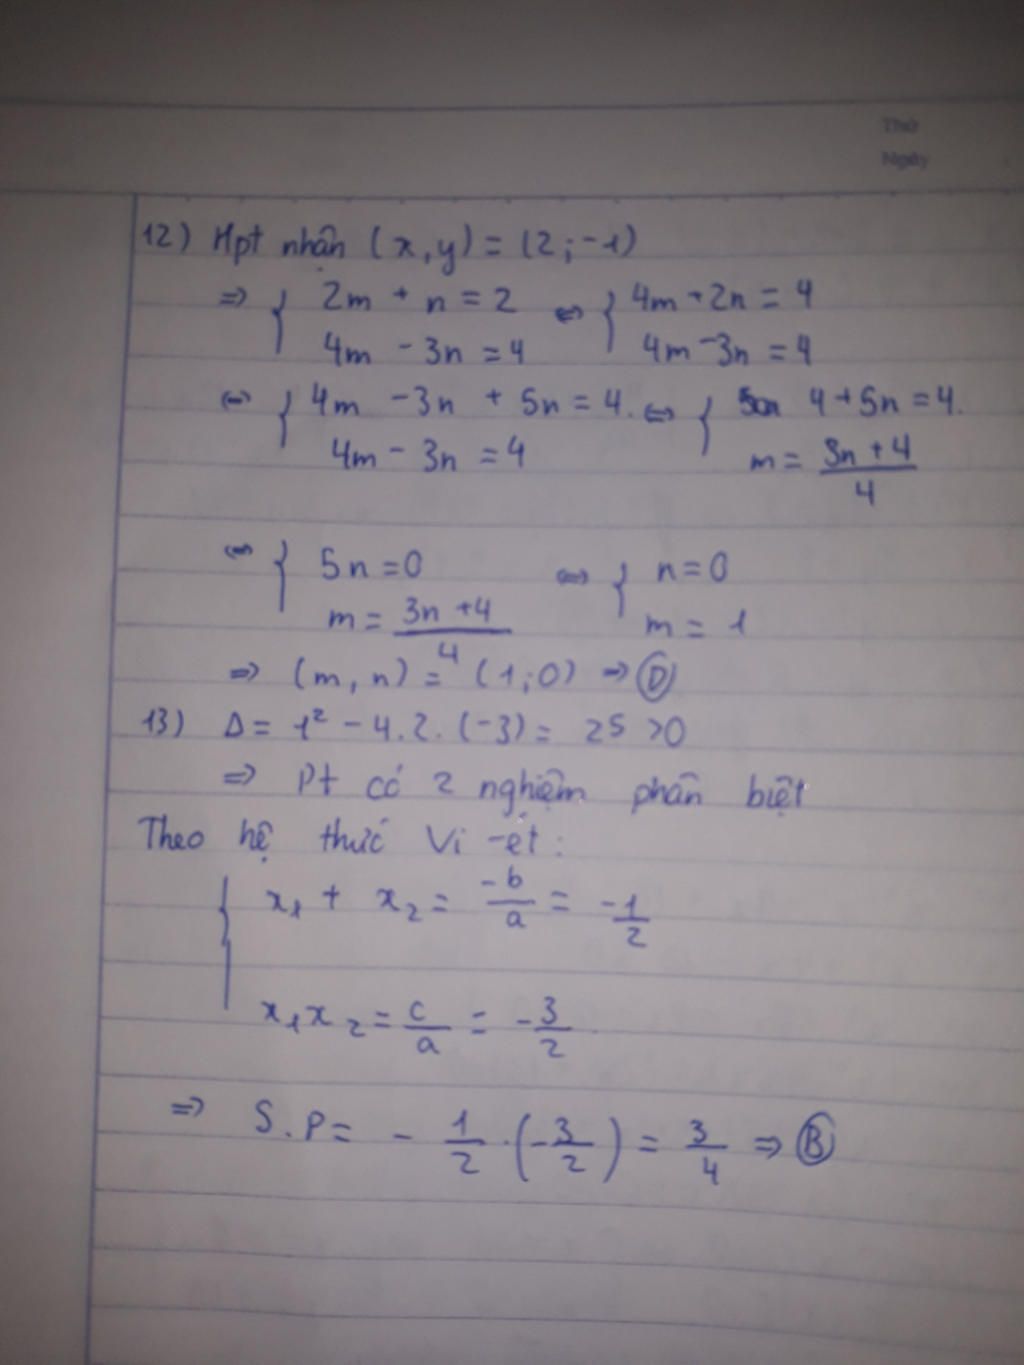 Thứ
Ngày
12) Hpt nhận (x,y) = (2;-1)
=> { 2m + n = 2 <=> { 4m + 2n = 4
4m - 3n = 4 4m - 3n = 4
<=> { 4m - 3n + 5n = 4. <=> { 4 + 5n = 4.
4m - 3n = 4 m = \frac{3n + 4}{4}
<=> { 5n = 0 <=> { n = 0
m = \frac{3n + 4}{4} m = 1
=> (m, n) = (1;0) => D
13) Δ = 1² - 4.2.(-3) = 25 >0
=> Pt có 2 nghiệm phân biệt
Theo hệ thức Vi-ét:
{ x₁ + x₂ = \frac{-b}{a} = -\frac{1}{2}
x₁x₂ = \frac{c}{a} = -\frac{3}{2}
=> S.P = -\frac{1}{2}.(-\frac{3}{2}) = \frac{3}{4} => B